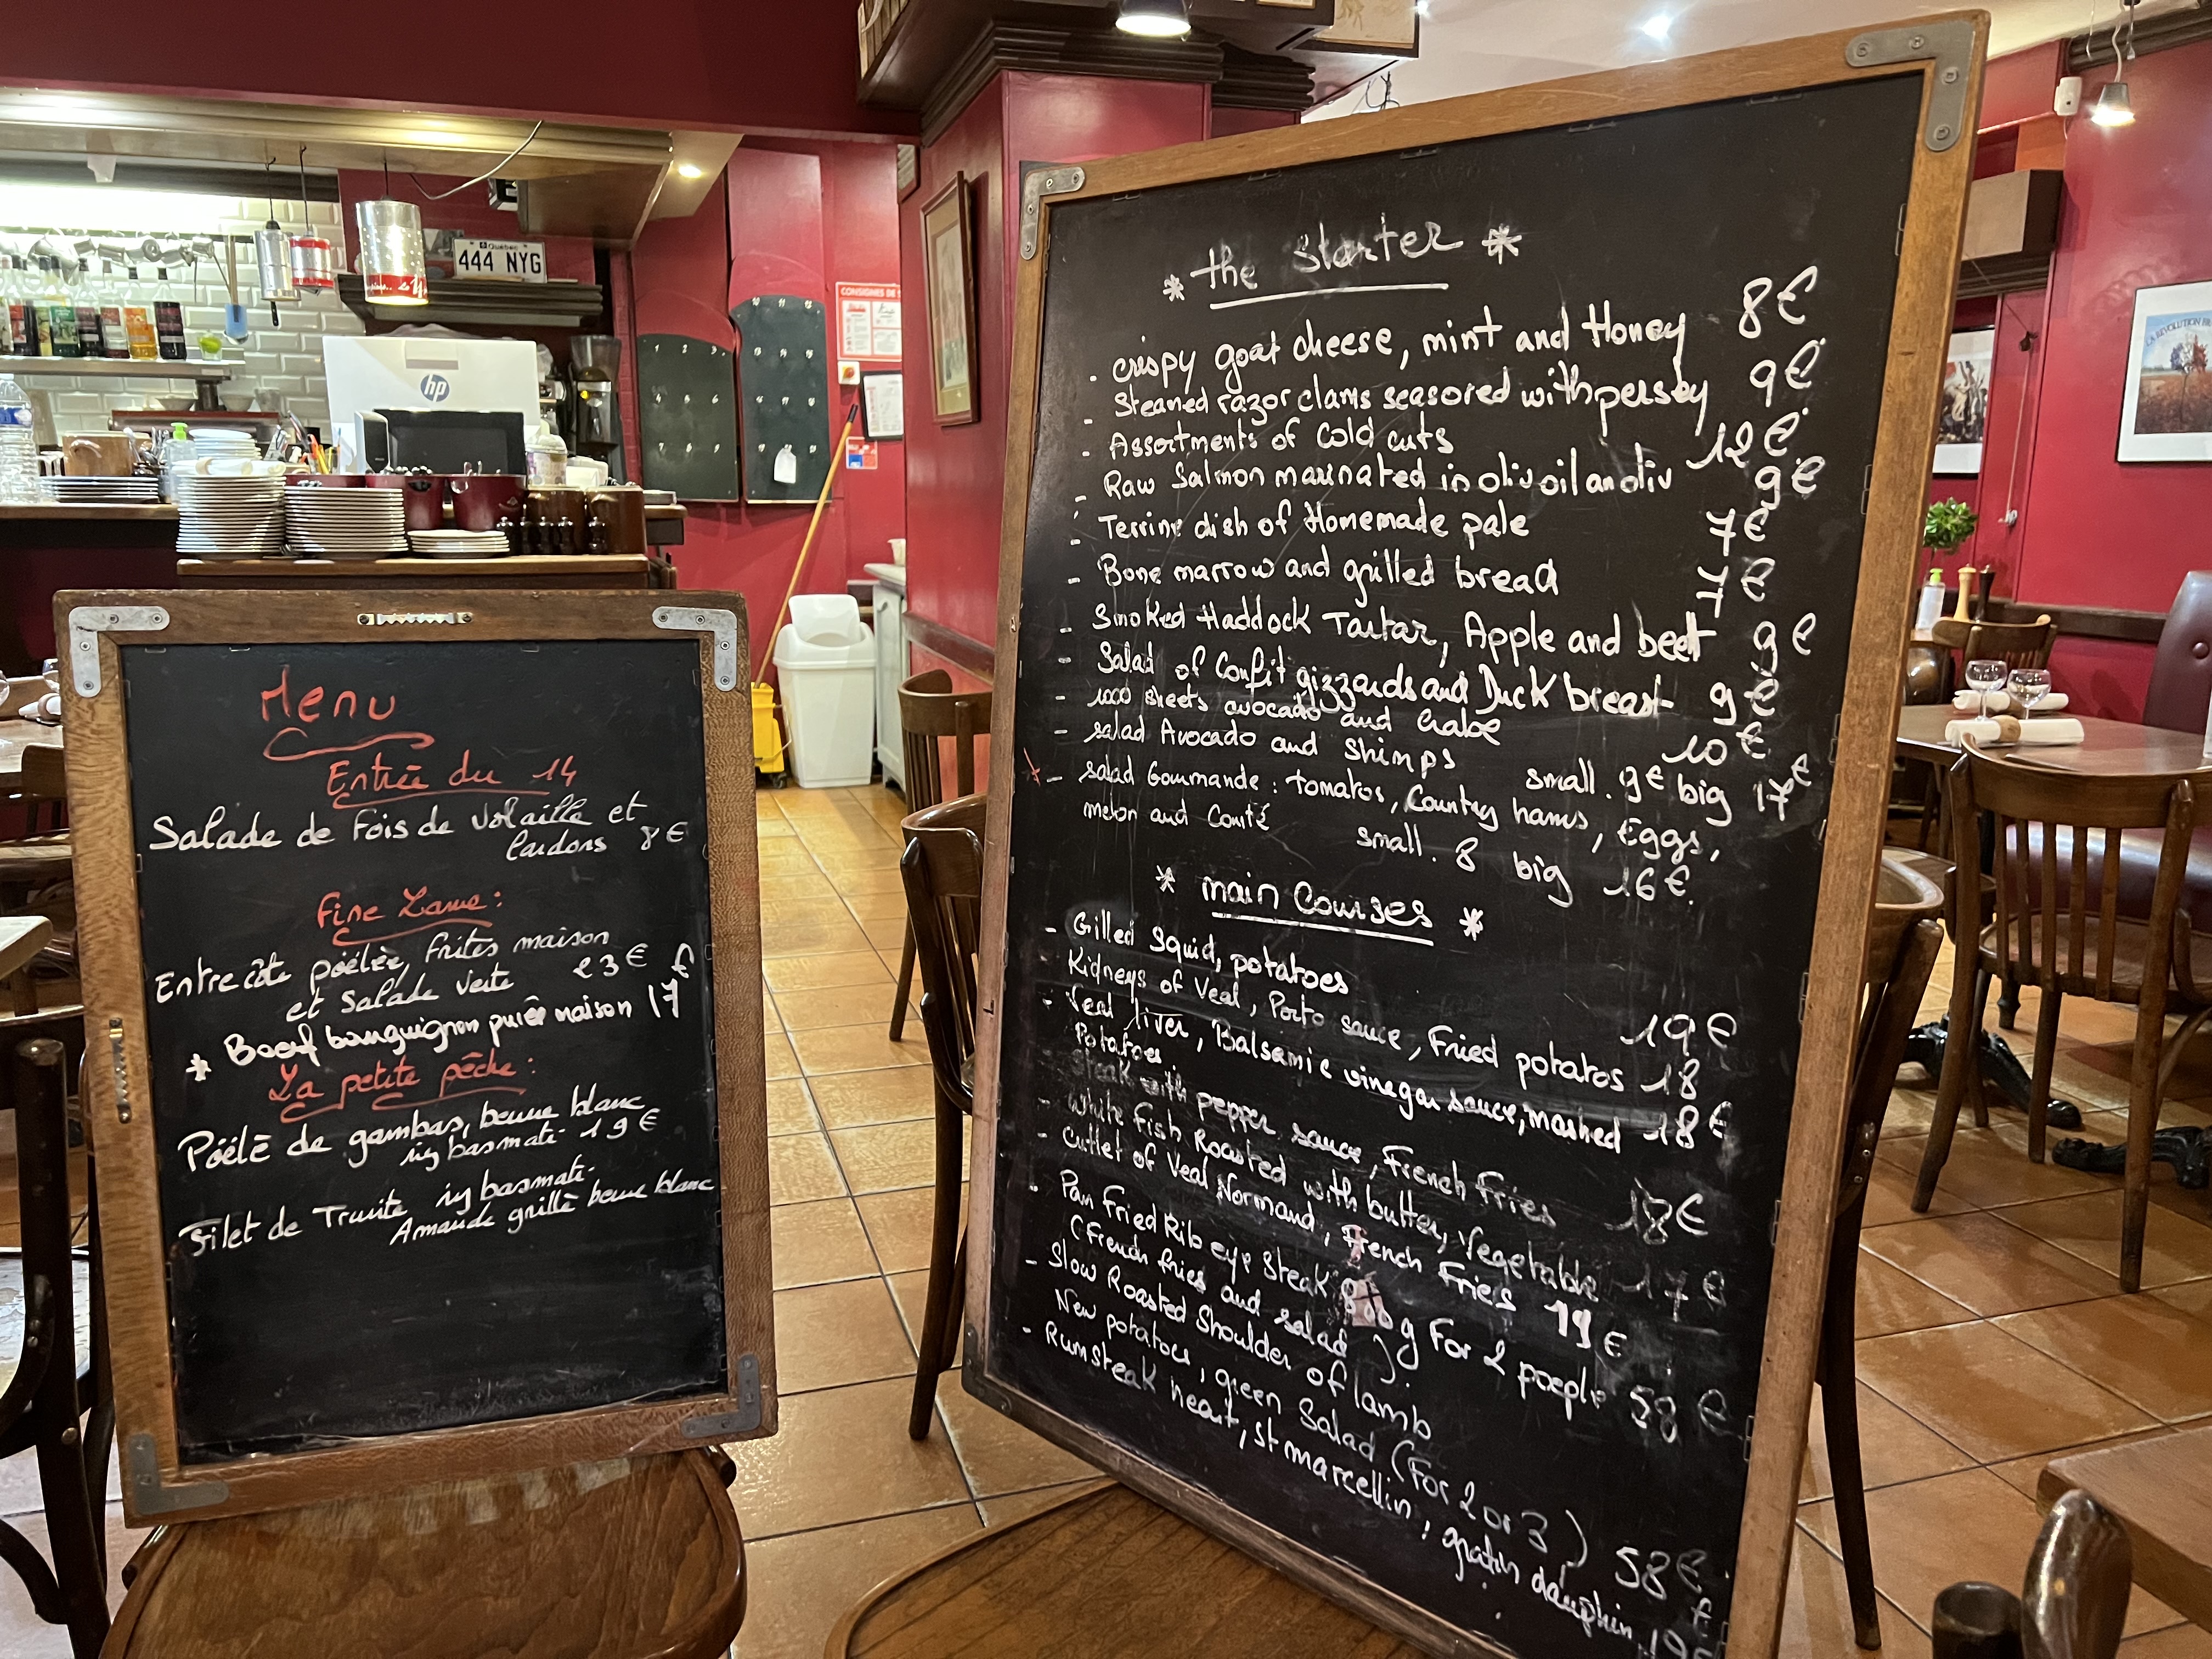 Menu
Entrée du 14
Salade de Fois de volaille et
lardons 8€
Fine Lame:
Entrecôte poêlée, frites maison
et Salade verte 23€
* Boeuf bourguignon purée maison 17€
La petite pêche:
Poêlé de gambas, beurre blanc
riz basmati 19€
Filet de Truite riz basmati
Amande grillé beurre blanc
* the Starter *
- crispy goat cheese, mint and Honey 8€
- Steamed razor clams seasored with persley 9€
- Assortments of cold cuts 12€
- Raw Salmon marinated in oliv oil and liv 9€
- Terrine dish of Homemade pale 7€
- Bone marrow and grilled bread 7€
- Smoked Haddock Tartar, Apple and beet 9€
- Salad of Confit gizzards and Duck breast 9€
- 1000 sheets avocado and Crabe 10€
- salad Avocado and shimps small. 9€ big 17€
- salad Gourmande: tomatos, Country hams, Eggs,
melon and Comté small. 8 big 16€.
* main Courses *
- Gilled squid, potatoes 19€
Kidneys of Veal, Porto sauce, Fried potatos 18
- Veal liver, Balsamic vinegar sauce, mashed 18€
Potatoes
Steak with pepper sauce, French Fries 18€
- White Fish Roasted with butter, Vegetable 17€
- Cutlet of Veal Normand, French Fries 19€
- Pan Fried Rib eye Steak g For 2 poeple 58€
(French fries and salad)
- Slow Roasted Shoulder of lamb
New potatoes, green Salad (For 2 or 3) 58€
- Rumsteak heart, St marcellin, gratin dauphin 19€
444 NYG
Quebec
hp
CONSIGNES DE
LA REVOLUTION FR